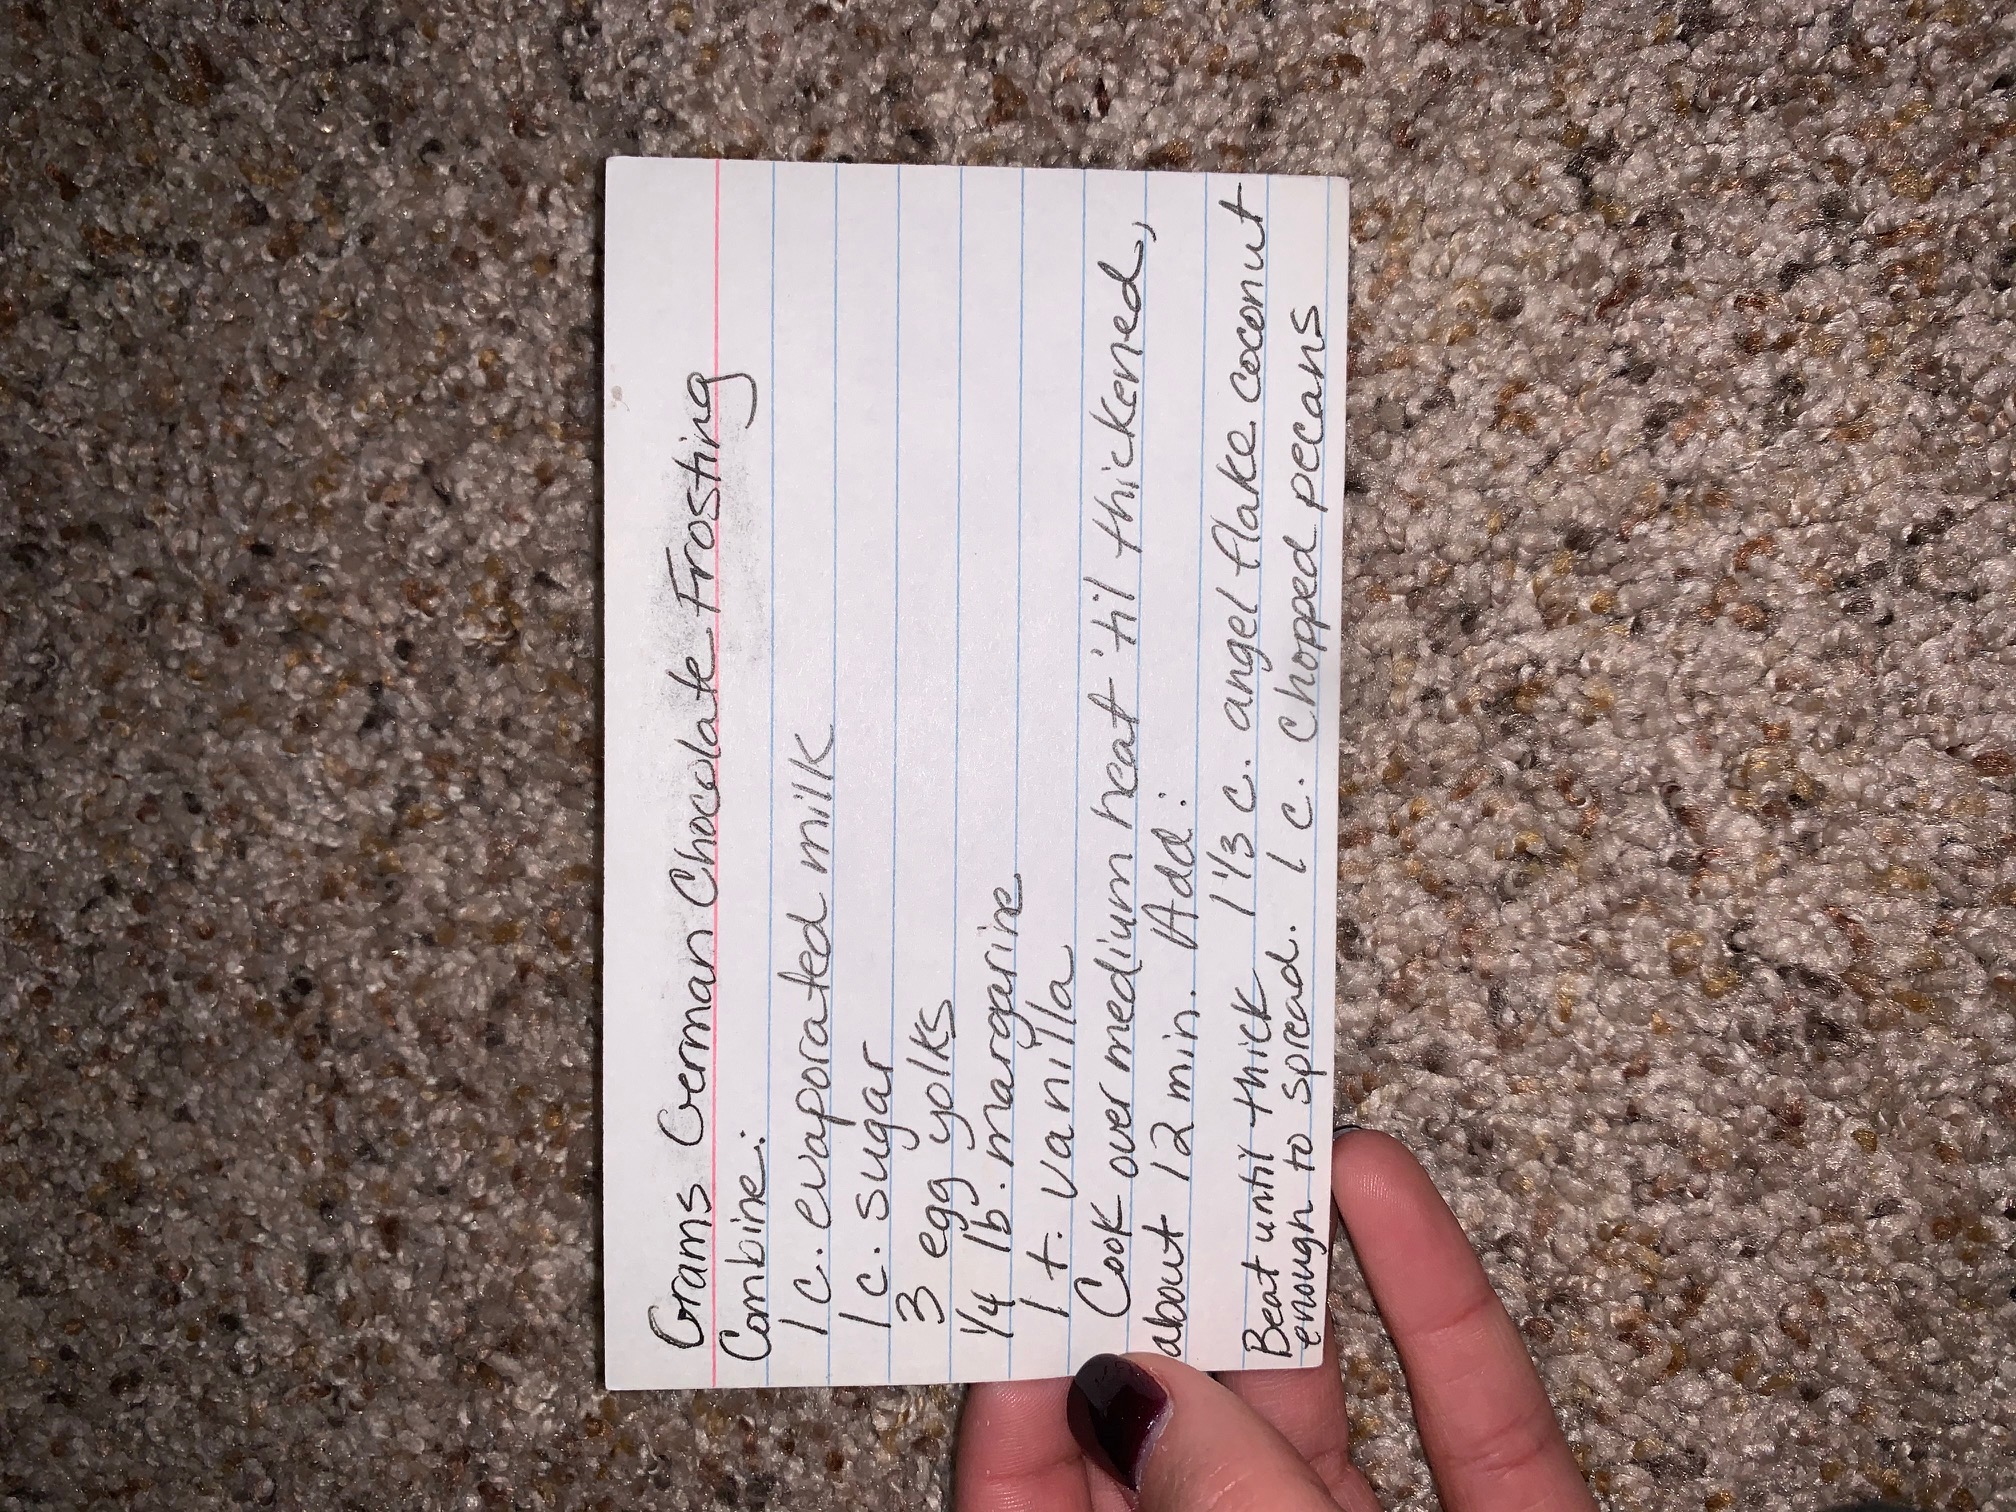 Grams German Chocolate Frosting
Combine:
1 c. evaporated milk
1 c. sugar
3 egg yolks
1/4 lb. margarine
1 t. vanilla
Cook over medium heat 'til thickened,
about 12 min. Add:
1 1/3 c. angel flake coconut
1 c. chopped pecans
Beat until thick
enough to spread.